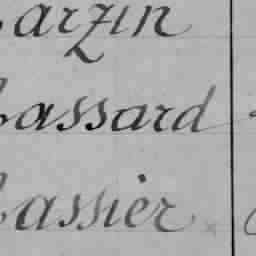 Larzin
Lassard
Lassier